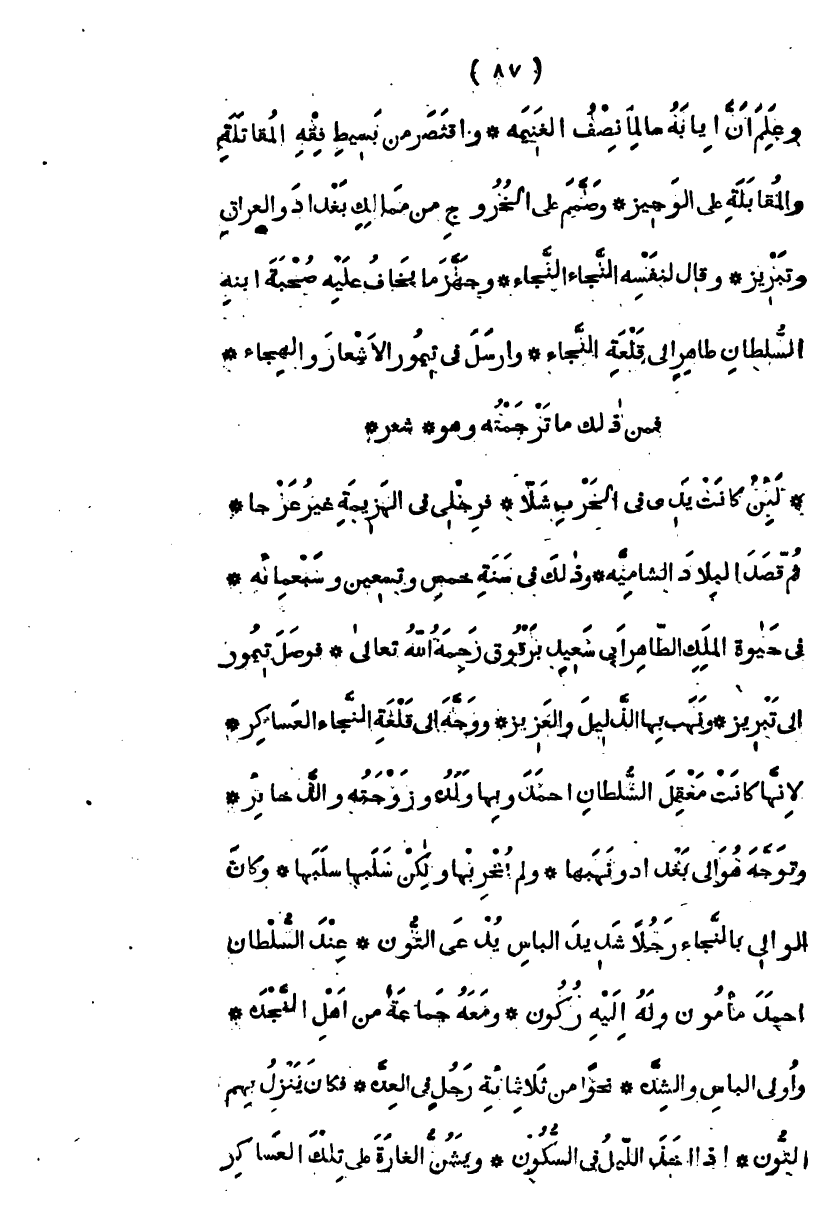 ( ٨٧ )
وعَلِمَ اَنَّ اِيابَهُ سالماً نِصْفُ الغَنيمَه * واقتَصَر من بَسيطِ فِقْهِ المُقاتَلَةِ
والمُقابَلَةِ على الوَجِيز * وصَمَّمَ على الخُرُوجِ من مَمالِكِ بَغْدادَ والعِراقِ
وتَبْرِيز * وقال لنَفْسِه النَّجاء النَّجاء * وجَهَّزَ ما يَخافُ عَلَيْه صُحْبَةَ ابنهِ
السُّلطانِ طاهِرٍ الى قَلْعَةِ النَّجاء * وارسَلَ فى تيمُور الاَشْعارَ والهِجاء *
فمن ذٰلك ما تَرْجَمْتُه وهو * شعر *
* لَئِنْ كانَتْ يَدِى فى الحَرْبِ شَلّا * فرِجْلِى فى الهَزِيمَةِ غيرُ عَرْجا *
ثُمّ قصَدَ البِلادَ الشاميَّه * وذٰلكَ فى سَنَةِ خمسٍ وتسعين وسَبْعمِائه *
فى حَيٰوة المَلِكِ الظّاهِر اَبى سَعِيدٍ بَرْقُوق رَحِمَهُ اللّٰهُ تعالىٰ * فوصَلَ تِيمُور
الى تَبْرِيز * ونَهَب بها الذَّليلَ والعَزِيز * ووَجَّهَ الى قَلْعَةِ النَّجاء العَساكِر *
لاِنَّها كانَتْ مَعْقِلَ السُّلطانِ احمَدَ وبِها وَلَدُه وزَوْجَتُه والذَّخائِرُ *
وتوَجَّهَ هُوَ الى بَغْداد ونَهَبَها * ولم يُخْرِبْها ولٰكِنْ سَلَبَها سَلَبَها * وكانَ
الوالِى بالنَّجاء رَجُلاً شَدِيدَ الباسِ يُدْعَى التُّون * عِنْدَ السُّلْطان
احمَدَ مأمُون ولَهُ اِلَيْهِ رُكُون * ومَعَهُ جَماعَةٌ من اَهْلِ النَّجْدَه *
واُولى الباسِ والشِّدَّه * نحوًا من ثَلاثمِائَةِ رَجُلٍ فى العِدَّه * فكانَ يَنْزِلُ بِهم
التُّون * اذا اخَذَ اللَّيلُ فى السُّكُون * ويَشُنُّ الغارَةَ على تِلْكَ العَساكِر